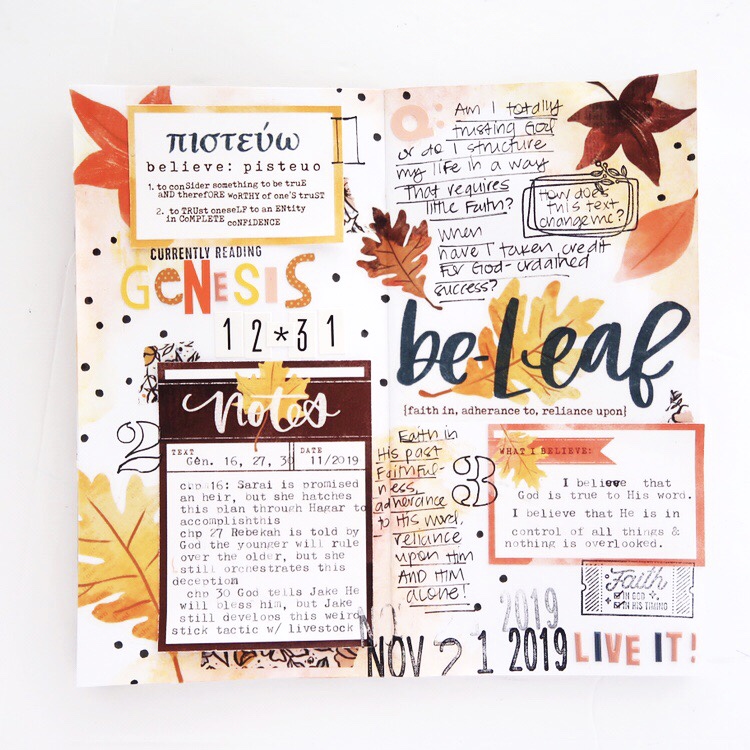 πιστεύω
believe: pisteuo
1. to conSider something to be truE
aND therefORE WORTHY of one'S truST
2. to TRUst oneseLF to an ENtity
in CoMPLETE CoNFIDENCE
1
CURRENTLY READING
GENESIS
12*31
2
Notes
TEXT
Gen. 16, 27, 30
DATE
11/2019
chp 16: Sarai is promised
an heir, but she hatches
this plan through Hagar to
accomplishtnis
chp 27 Rebekah is told by
God the younger will rule
over the older, but she
still orchestrates this
deception
chp 30 God tells Jake He
will bless him, but Jake
still develops this weird
stick tactic w/ livestock
Q:
Am I totally
trusting God
or do I structure
my life in a way
that requires
little Faith?
When
have I taken credit
For God-ordained
success?
How does
this text
change me?
be-Leaf
{faith in, adherance to, reliance upon}
Faith in
His past
Faithful-
ness,
adherance
to His word,
reliance
upon Him
AND HIM
alone!
3
WHAT I BELIEVE:
I believe that
God is true to His word.
I believe that He is in
control of all things &
nothing is overlooked.
Faith
IN GOD
IN HIS TIMING
2019
NOV 21 2019
LIVE IT!